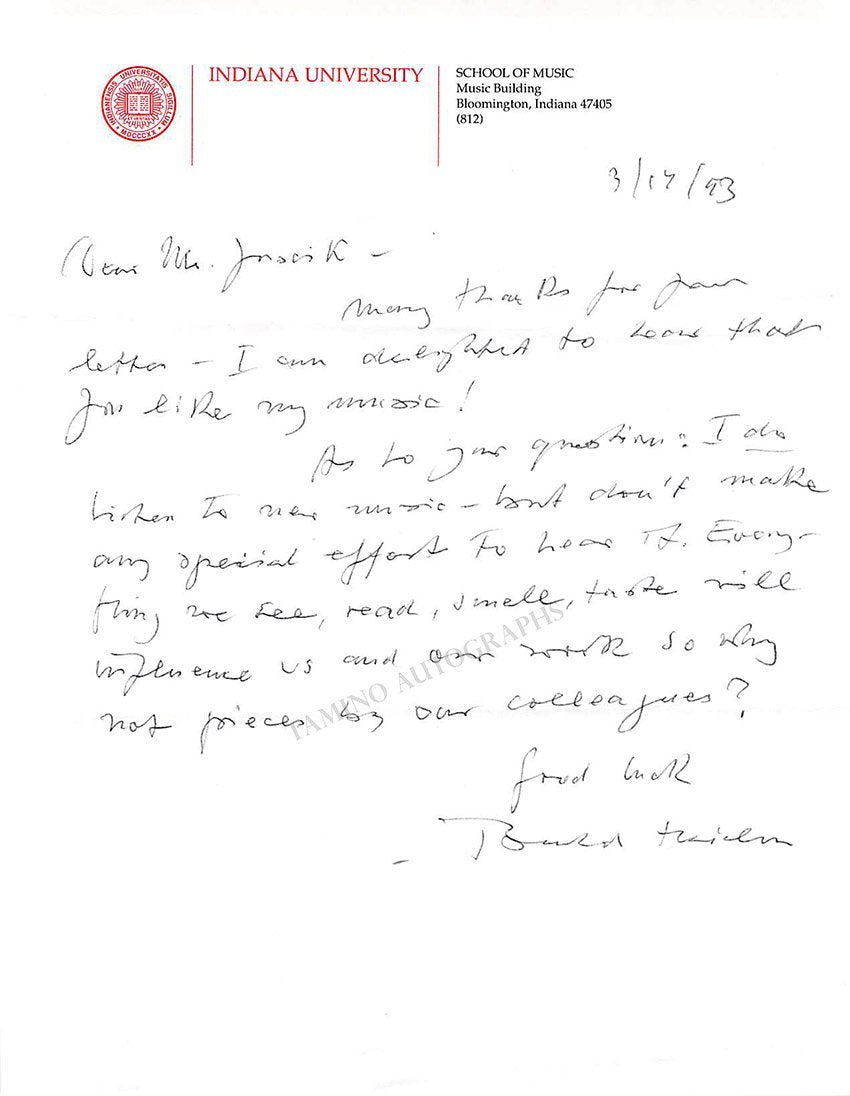 INDIANA UNIVERSITY
SCHOOL OF MUSIC
Music Building
Bloomington, Indiana 47405
(812)
INDIANENSIS UNIVERSITATIS SIGILLUM
MDCCCXX
3/17/93
Dear Mr. -
Many thanks for your
letter - I am delighted to hear that
you like my music!
As to your question: I do
listen to new music - but don't make
any special effort to hear it. Every-
thing we see, read, smell, taste will
influence us and our work so why
not pieces by our colleagues?
Good luck
TAMINO AUTOGRAPHS